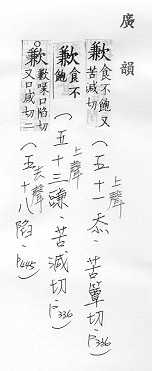 廣韻
歉 食不飽又苦減切
上聲
(五十一忝·苦簟切·P.336)
歉 食不飽
上聲
(五十三豏·苦減切·P.336)
歉 歉喙口陷切又口咸切二
去聲
(五十八陷·P.445)